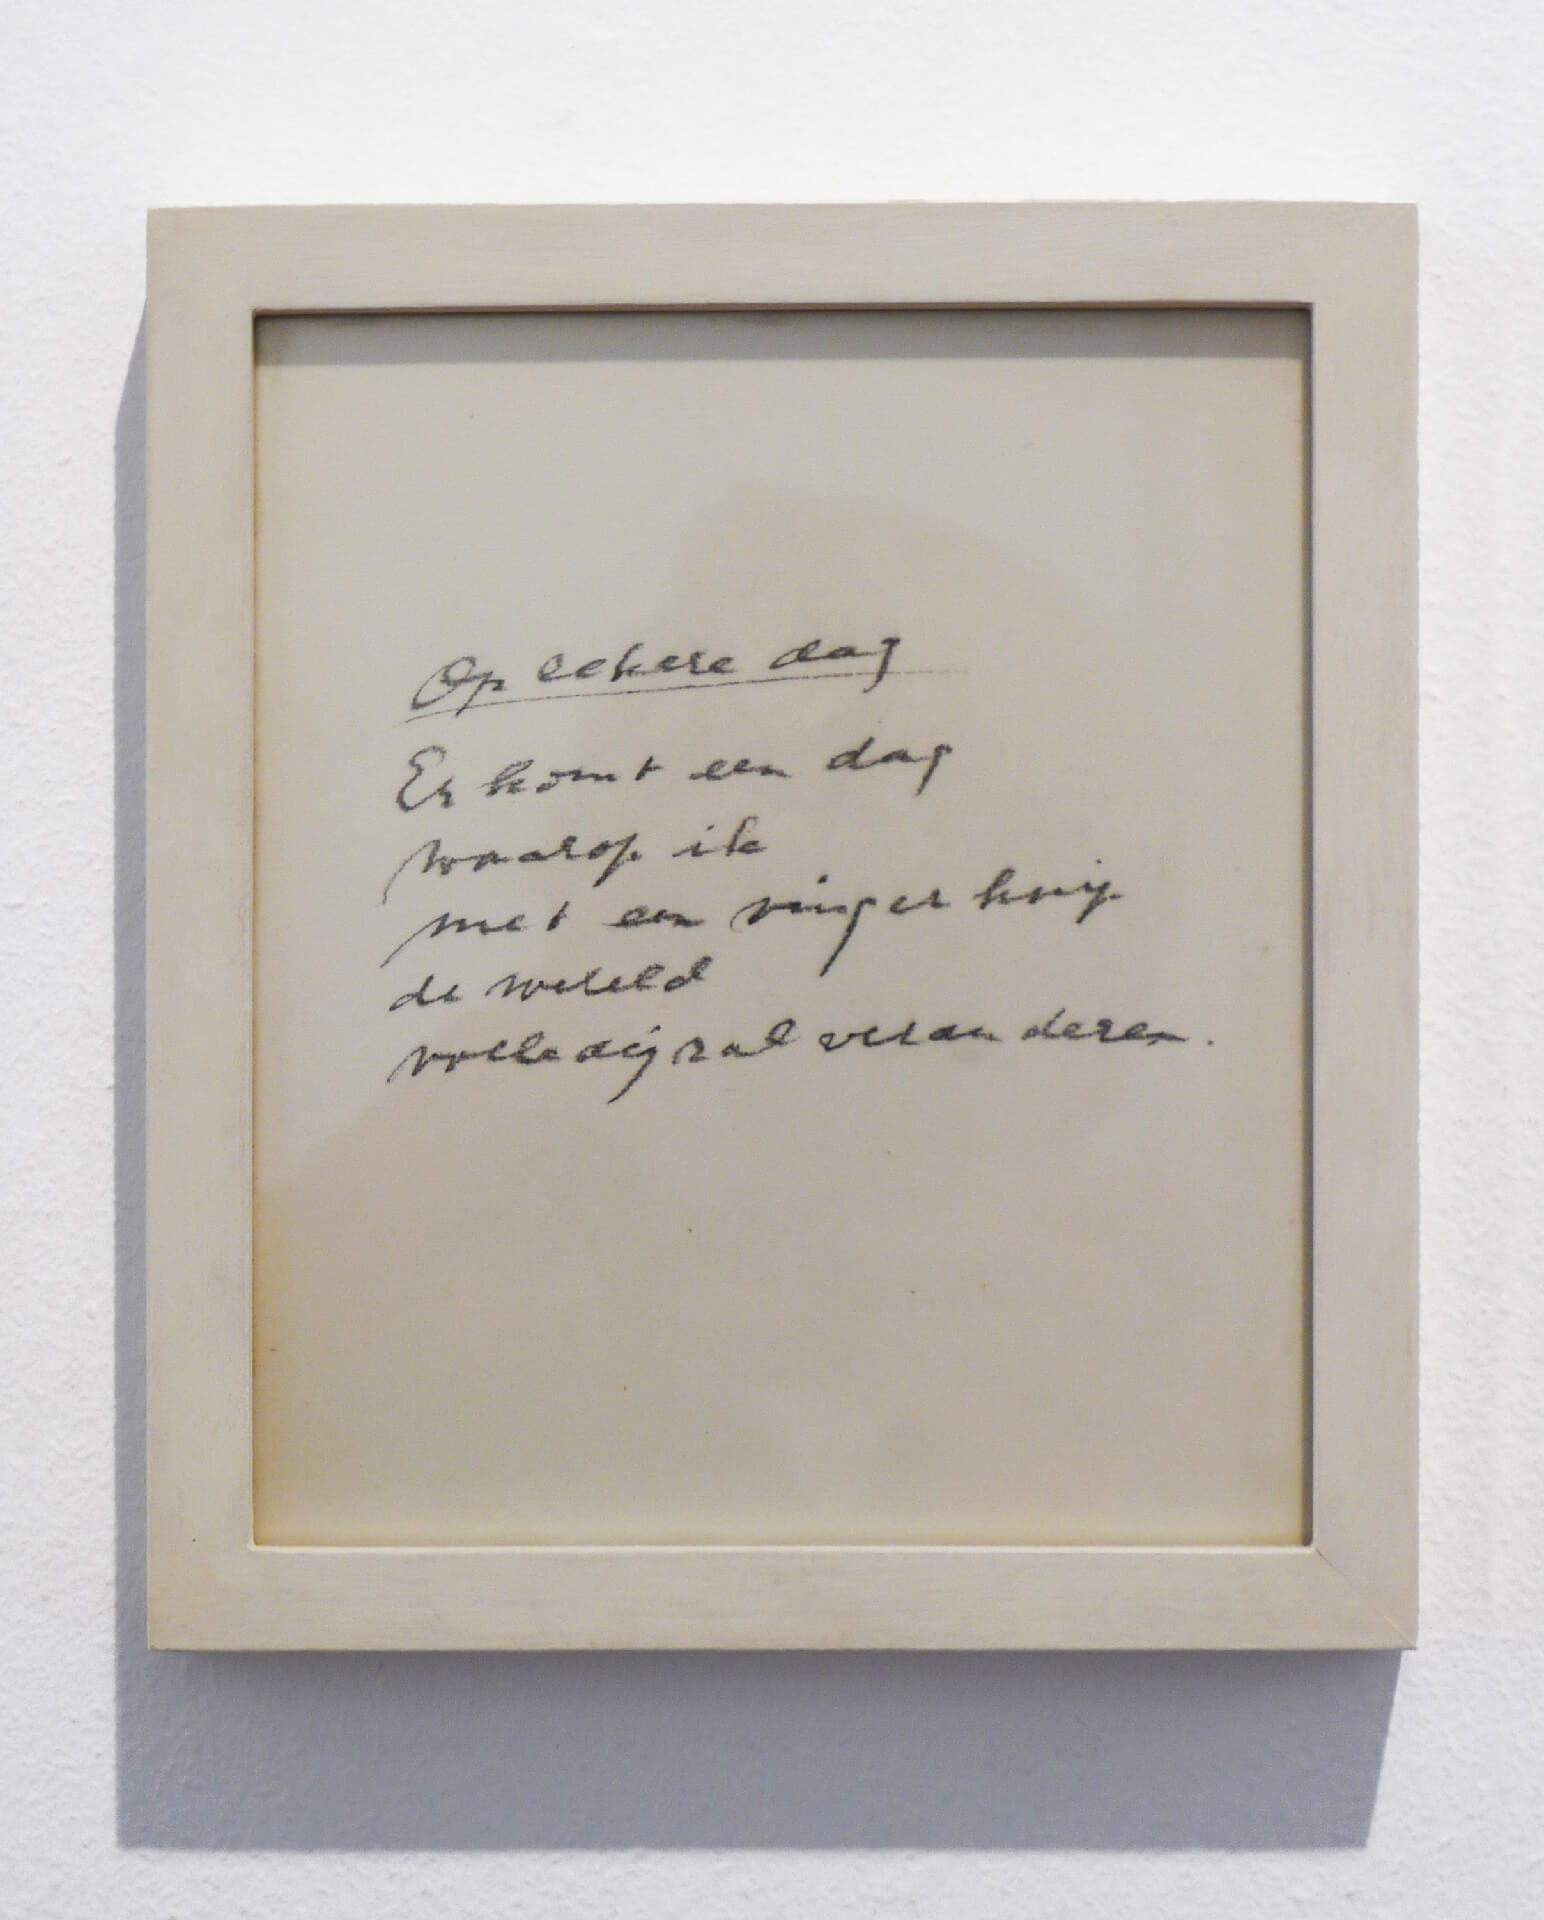 Op zekere dag
Er komt een dag
waarop ik
met een vingerknip
de wereld
volledig zal veranderen.